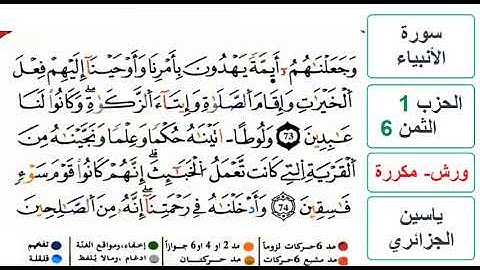 سورة
الأنبياء
الحزب 1
الثمن 6
ورش- مكررة
ياسين
الجزائري
وَجَعَلْنَٰهُمُۥٓ أَيِمَّةً يَهْدُونَ بِأَمْرِنَا وَأَوْحَيْنَآ إِلَيْهِمْ فِعْلَ
اَ۬لْخَيْرَٰتِ وَإِقَامَ اَ۬لصَّلَوٰةِ وَإِيتَآءَ اَ۬لزَّكَوٰةِۖ وَكَانُواْ لَنَا
عَٰبِدِينَ 73 وَلُوطاً ءَاتَيْنَٰهُ حُكْماً وَعِلْماً وَنَجَّيْنَٰهُ مِنَ
اَ۬لْقَرْيَةِ اِ۬لتِے كَانَت تَّعْمَلُ اُ۬لْخَبَٰٓئِثَۖ إِنَّهُمْ كَانُواْ قَوْمَ سَوْءٖ
فَٰسِقِينَ 74 وَأَدْخَلْنَٰهُ فِے رَحْمَتِنَآۖ إِنَّهُۥ مِنَ اَ۬لصَّٰلِحِينَ
مد 6 حركات لزوماً مد 2 أو 4 أو 6 جوازاً إخفاء، ومواقع الغنة تفخيم
مد مشبع 6 حركات مد حركتان إدغام ، وما لا يُلفظ قلقلة